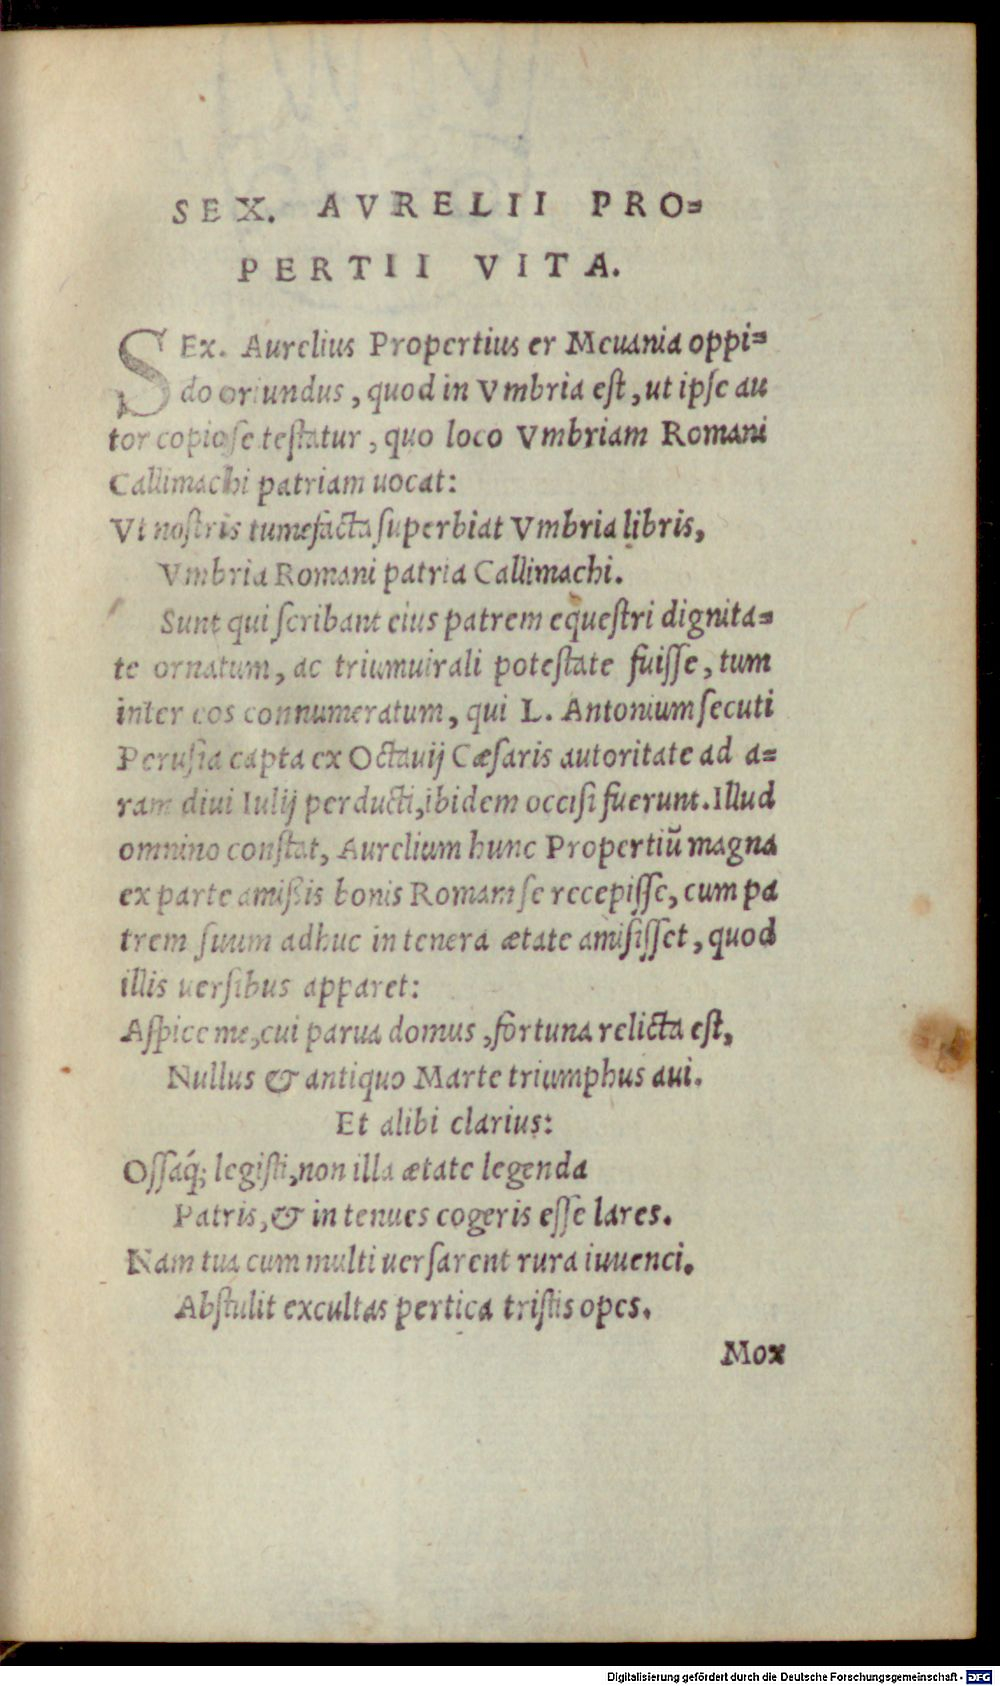 SEX. AVRELII PRO-
PERTII VITA.
SEx. Aurelius Propertius er Meuania oppi-
do oriundus, quod in Vmbria est, ut ipse au
tor copiose testatur, quo loco Vmbriam Romani
Callimachi patriam uocat:
Vt nostris tumefacta superbiat Vmbria libris,
Vmbria Romani patria Callimachi.
Sunt qui scribant eius patrem equestri dignita-
te ornatum, ac triumuirali potestate fuisse, tum
inter eos connumeratum, qui L. Antonium secuti
Perusia capta ex Octauij Cæsaris autoritate ad a-
ram diui Iulij perducti, ibidem occisi fuerunt. Illud
omnino constat, Aurelium hunc Propertiũ magna
ex parte amißis bonis Romam se recepisse, cum pa
trem suum adhuc in tenera ætate amisisset, quod
illis uersibus apparet:
Aspice me, cui parua domus, fortuna relicta est,
Nullus & antiquo Marte triumphus aui.
Et alibi clarius:
Ossaq́; legisti, non illa ætate legenda
Patris, & in tenues cogeris esse lares.
Nam tua cum multi uersarent rura iuuenci.
Abstulit excultas pertica tristis opes.
Mox
Digitalisierung gefördert durch die Deutsche Forschungsgemeinschaft - DFG